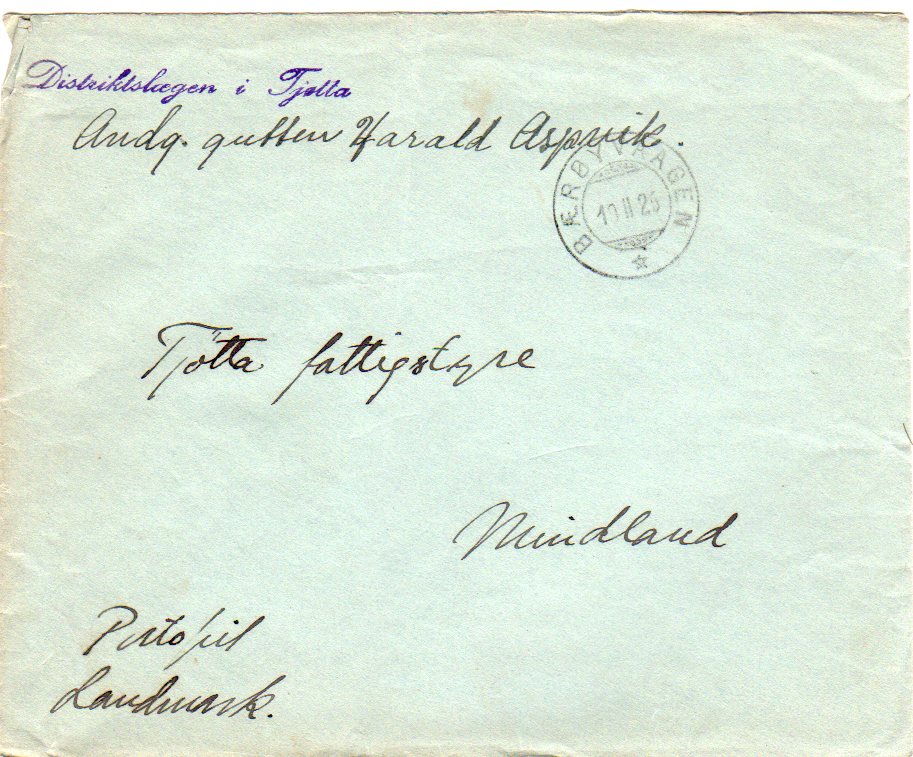 Distriktslægen i Tjøtta
Andg. gutten Harald Aspvik.
BÆRØYVAAGEN
10 II 25
Tjötta fattigstyre
Mindland
Portofrit
Landmark.